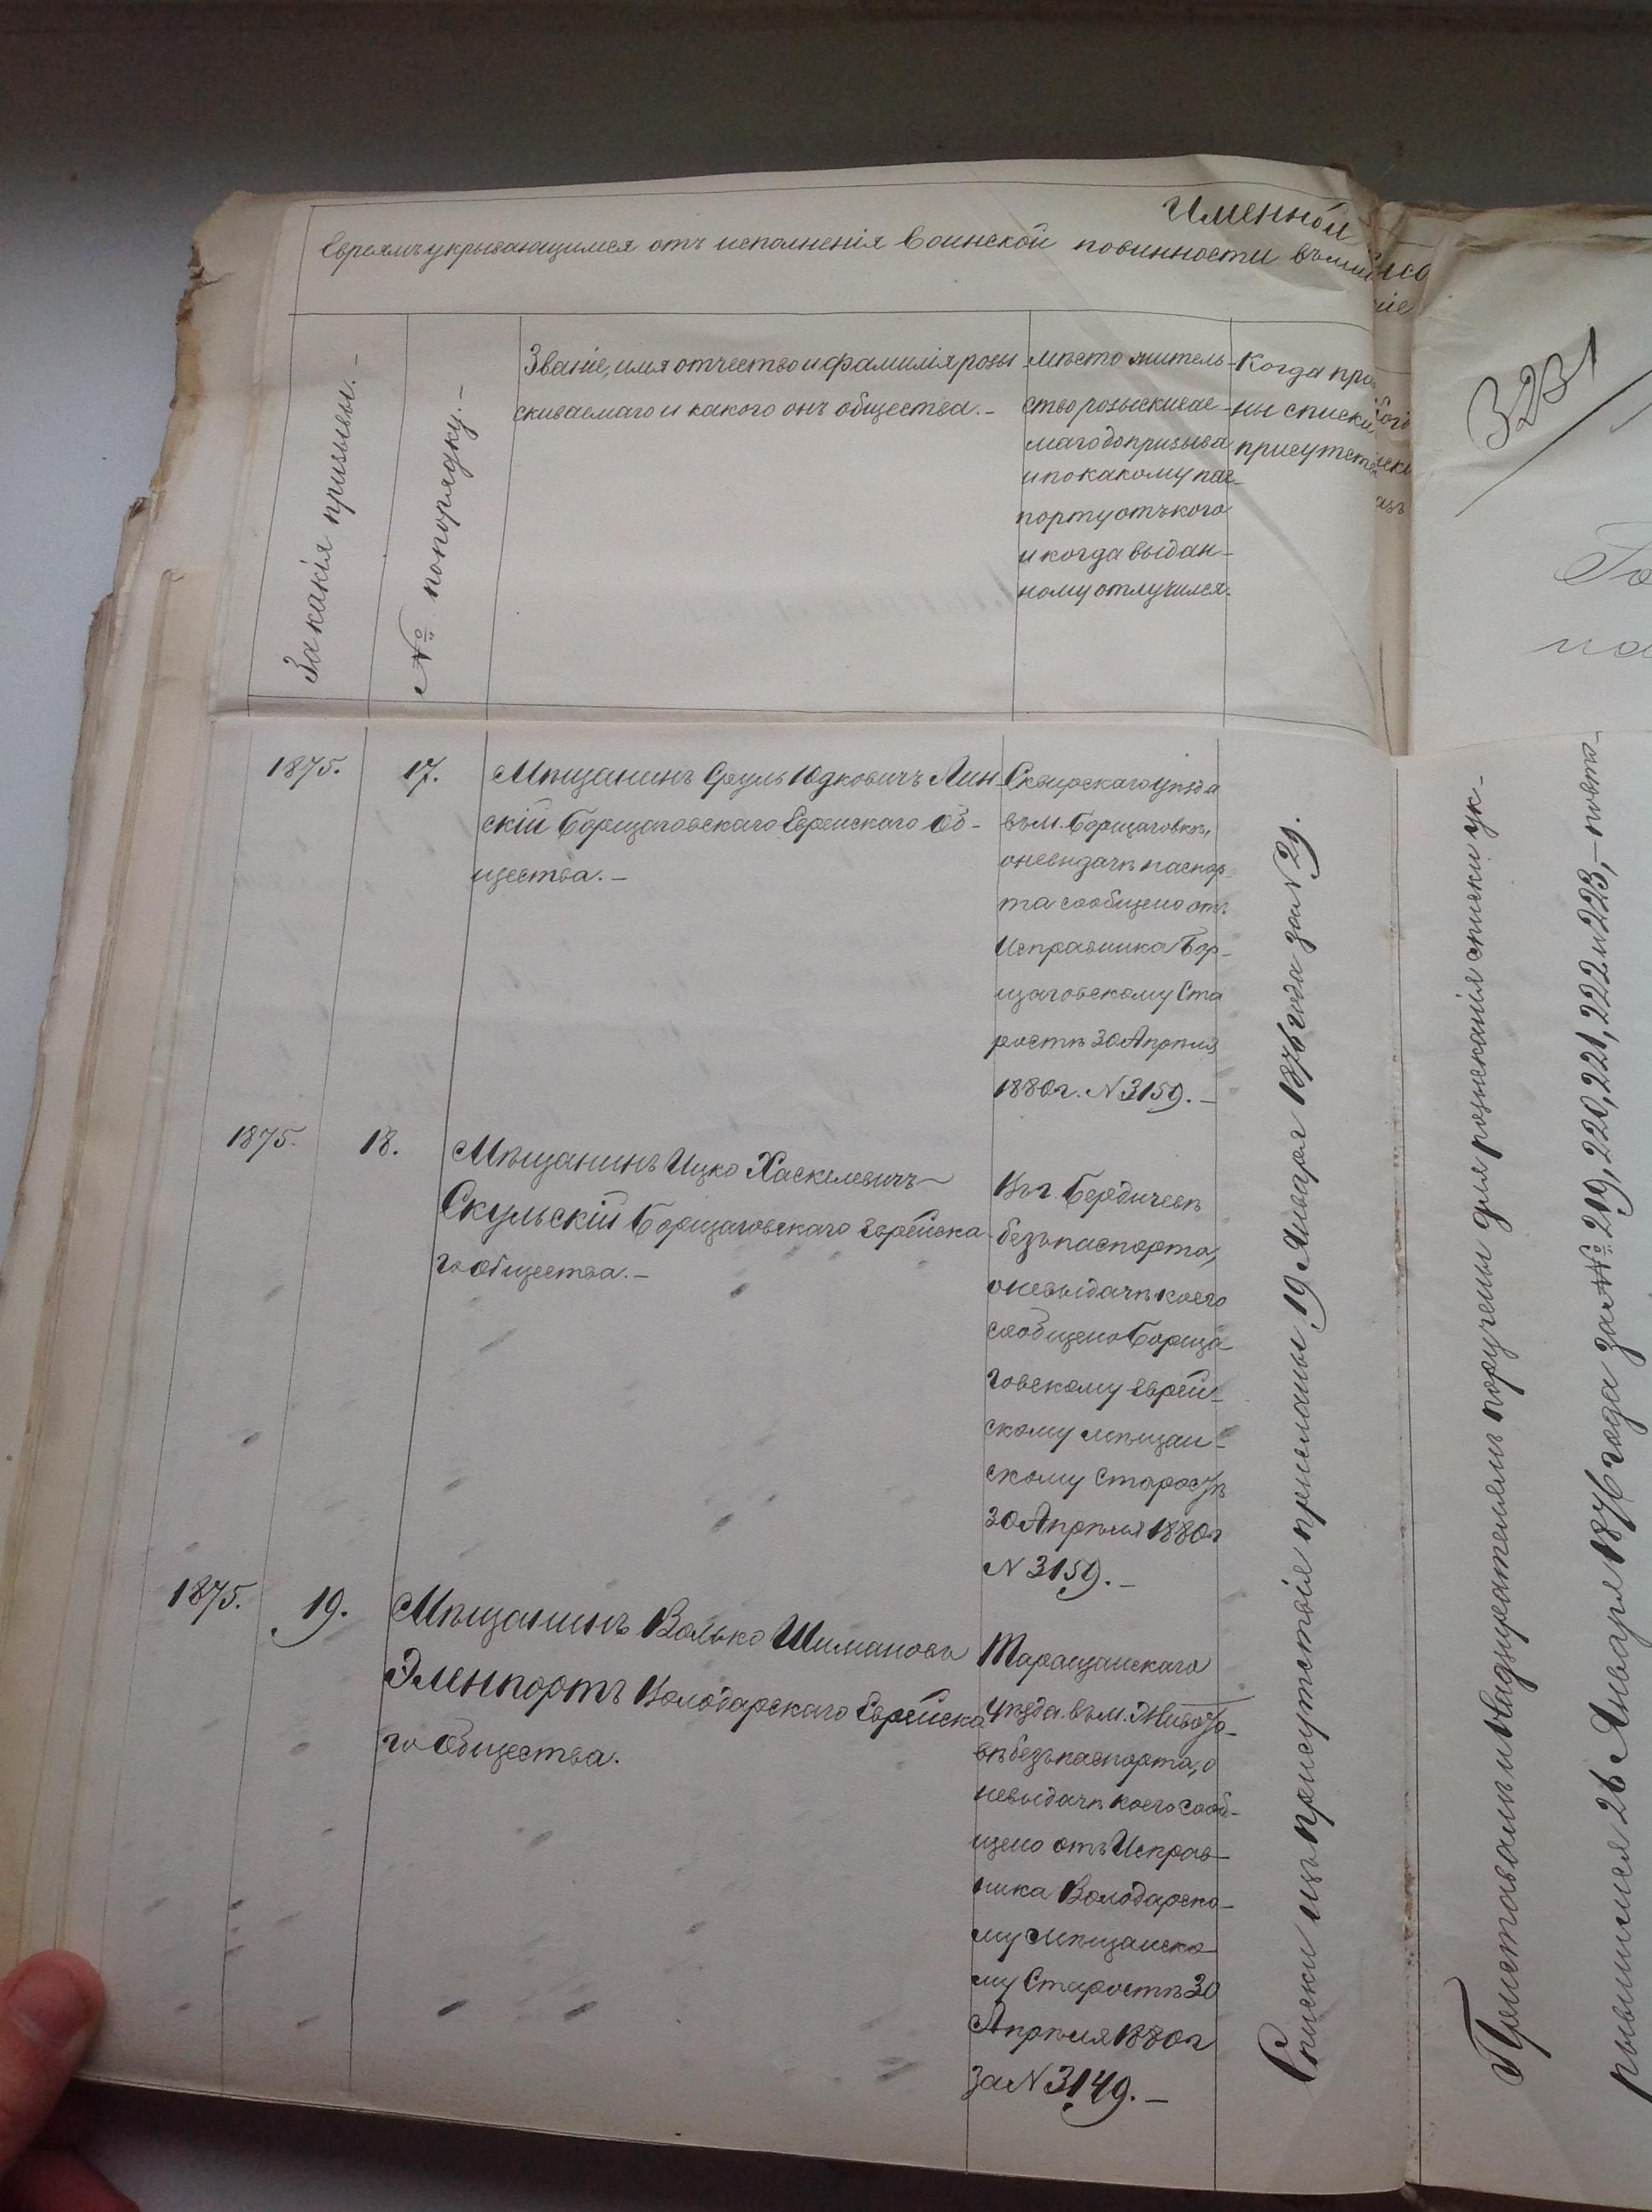 Именной
Евреямъ укрывающимся отъ исполненія воинской повинности
За какія призывы. –
№ по порядку. –
Званіе, имя отчество и фамилія розы
скиваемаго и какого онъ общества. –
Мѣсто житель-
ство розыскивае-
маго до призыва
и по какому пас-
порту отъ кого
и когда выдан-
ному отлучился.
Когда при
ны списки
присутств
1875.
17.
Мѣщанинъ Сруль Юдковичъ Лин
скій Борщаговскаго Еврейскаго Об-
щества. –
Сквирскаго уѣзда
въ м. Борщаговкѣ,
о невыдачѣ паспор
та сообщено отъ
Исправника Бор-
щаговскому Ста
ростѣ 30 Апрѣля
1880 г. N 3159. –
1875.
18.
Мѣщанинъ Ицко Хаскелевичъ
Скульскій Борщаговскаго Еврейска
го общества. –
Въ г. Бердичевѣ
безъ паспорта,
о невыдачѣ коего
сообщено Борща
говскому Еврей-
скому мѣщан-
скому Старостѣ
30 Апрѣля 1880 г
N 3159. –
1875.
19.
Мѣщанинъ Волько Шимановъ
Эленпортъ Володарскаго Еврейска
го Общества.
Таращанскаго
уѣзда въ м. Живото-
вѣ безъ паспорта, о
невыдачѣ коего сооб-
щено отъ Исправ-
ника Володарско-
му Мѣщанско
му Старостѣ 30
Апрѣля 1880 г
за N 3149. –
Списки изъ присутствія присланы 19 Января 1876 года за N 29.
3231
Приставамъ и Надзирателямъ поручены для розысканія списки ук-
рывшимся 26 Января 1876 года за №№ 219, 220, 221, 222 и 223, –